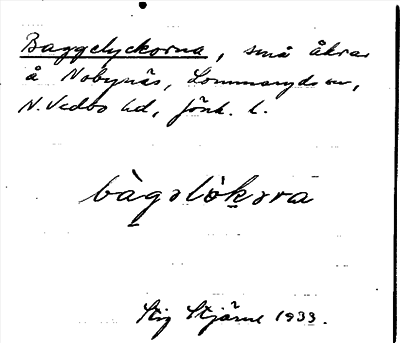 Baggelyckorna, små åkrar
å Nobynäs, Lommaryds sn,
N. Vedbo hd, Jönk. l.
bàgəlòkəra
Stig Stjärne 1933.